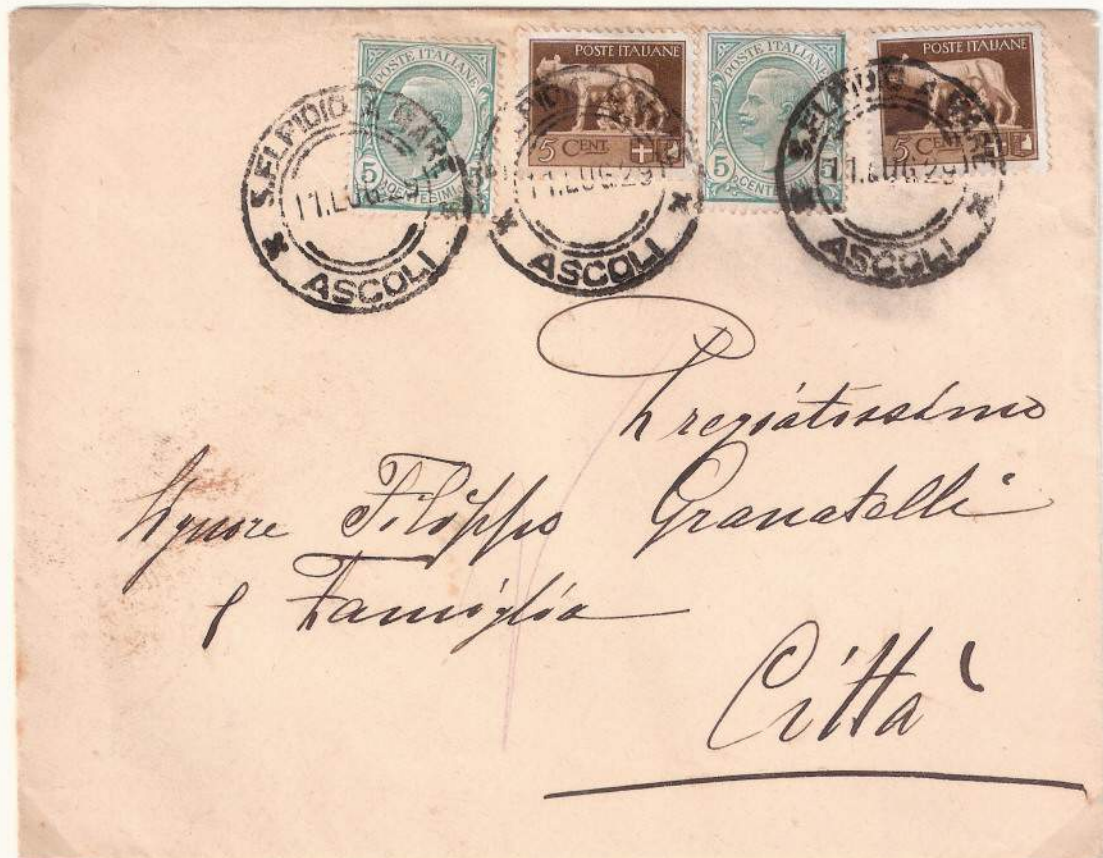 POSTE ITALIANE
5 CENTESIMI 5
POSTE ITALIANE
5 CENT.
POSTE ITALIANE
5 CENTESIMI 5
POSTE ITALIANE
5 CENT.
S.ELPIDIO A MARE
11.LUG.29
ASCOLI
S.ELPIDIO A MARE
11.LUG.29
ASCOLI
S.ELPIDIO A MARE
11.LUG.29
ASCOLI
Pregiatissimo
Signore Filippo Granatelli
e Famiglia
Città